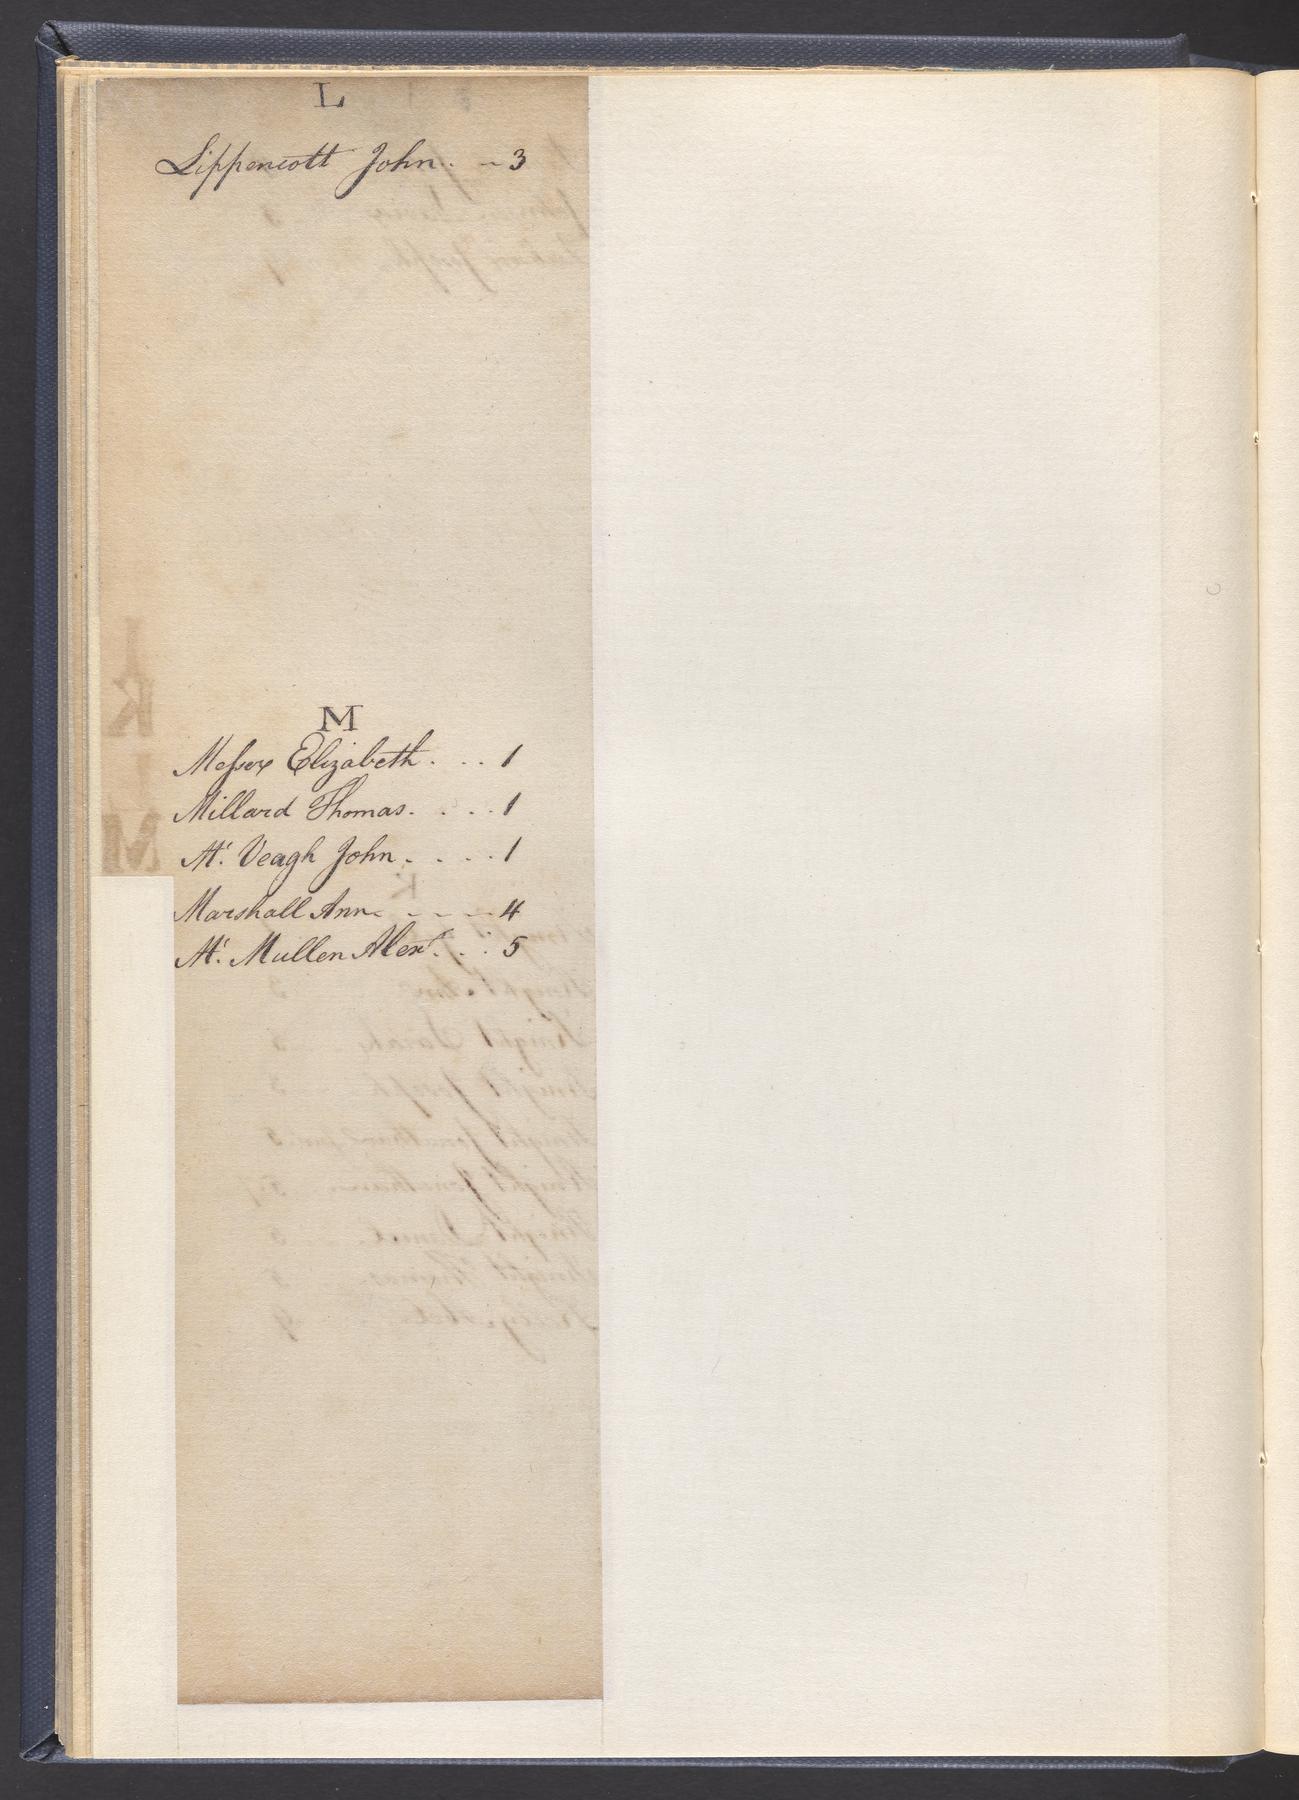 L
Lippencott John. - 3
M
Messer Elizabeth. . . . 1
Millard Thomas. . . . . 1
Mc. Veagh John. . . . . 1
Marshall Ann - - - - 4
Mc. Mullen Alexr. . . 5
K
M